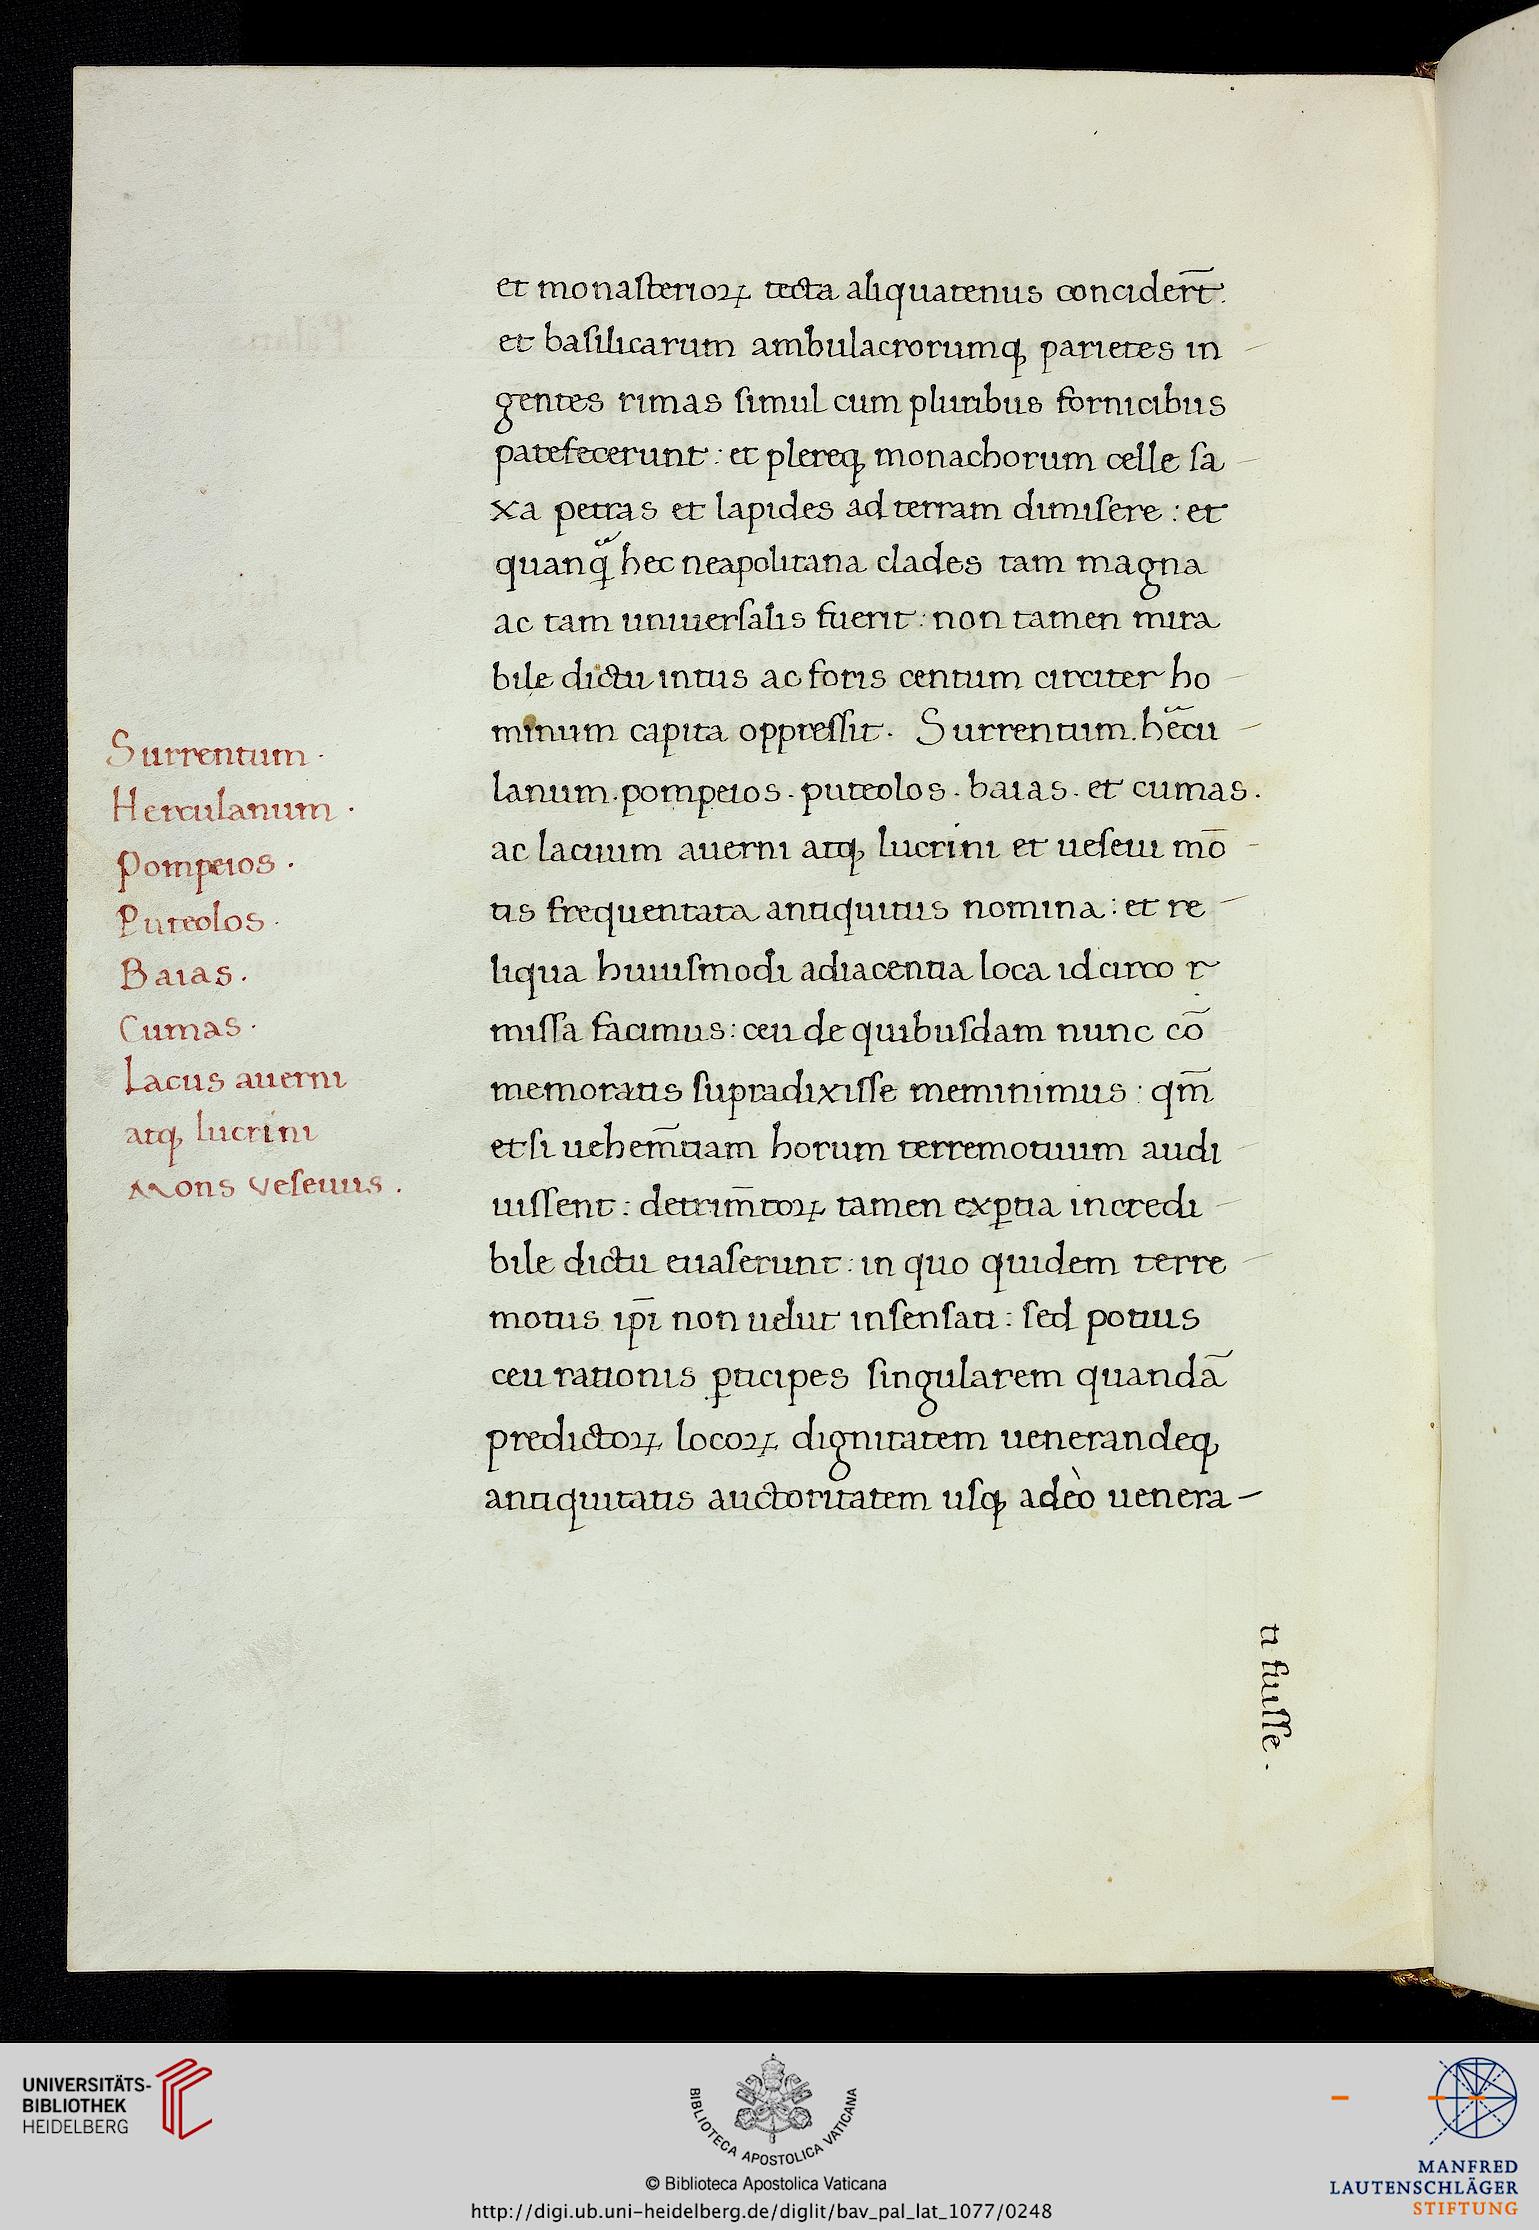 et monasterioꝝ tecta aliquatenus conciderт̄.
et basilicarum ambulacrorumqꝫ parietes in
gentes rimas simul cum pluribus fornicibus
patefecerunt : et plereqꝫ monachorum celle sa
xa petras et lapides ad terram dimisere : et
quanqᷓ hec neapolitana clades tam magna
ac tam uniuersalis fuerit : non tamen mira
bile dictu intus ac foris centum circiter ho
minum capita oppressit. Surrentum. he᷑cu
lanum. pompeios. puteolos. baias. et cumas.
ac lacuum auerni atqꝫ lucrini et ueseui mō
tis frequentata antiquitus nomina : et re
liqua huiusmodi adiacentia loca idcirco p̱r
missa facimus : ceu de quibusdam nunc cō
memoratis supradixisse meminimus : qm̄
etsi uehem̄tiam horum terremotuum audi
uissent : detrim̄toꝝ tamen exꝑtia incredi
bile dictu euaserunt : in quo quidem terre
motus ip̄i non uelut insensati : sed potius
ceu rationis ꝑticipes singularem quandā
predictoꝝ locoꝝ dignitatem uenerandeqꝫ
antiquitatis auctoritatem usqꝫ adeò uenera-
ti fuisse.
Surrentum.
Herculanum.
Pompeios.
Puteolos.
Baias.
Cumas.
Lacus auerni
atqꝫ lucrini
Mons veseuus.
UNIVERSITÄTS-
BIBLIOTHEK
HEIDELBERG
BIBLIOTECA APOSTOLICA VATICANA
© Biblioteca Apostolica Vaticana
http://digi.ub.uni-heidelberg.de/diglit/bav_pal_lat_1077/0248
MANFRED
LAUTENSCHLÄGER
STIFTUNG